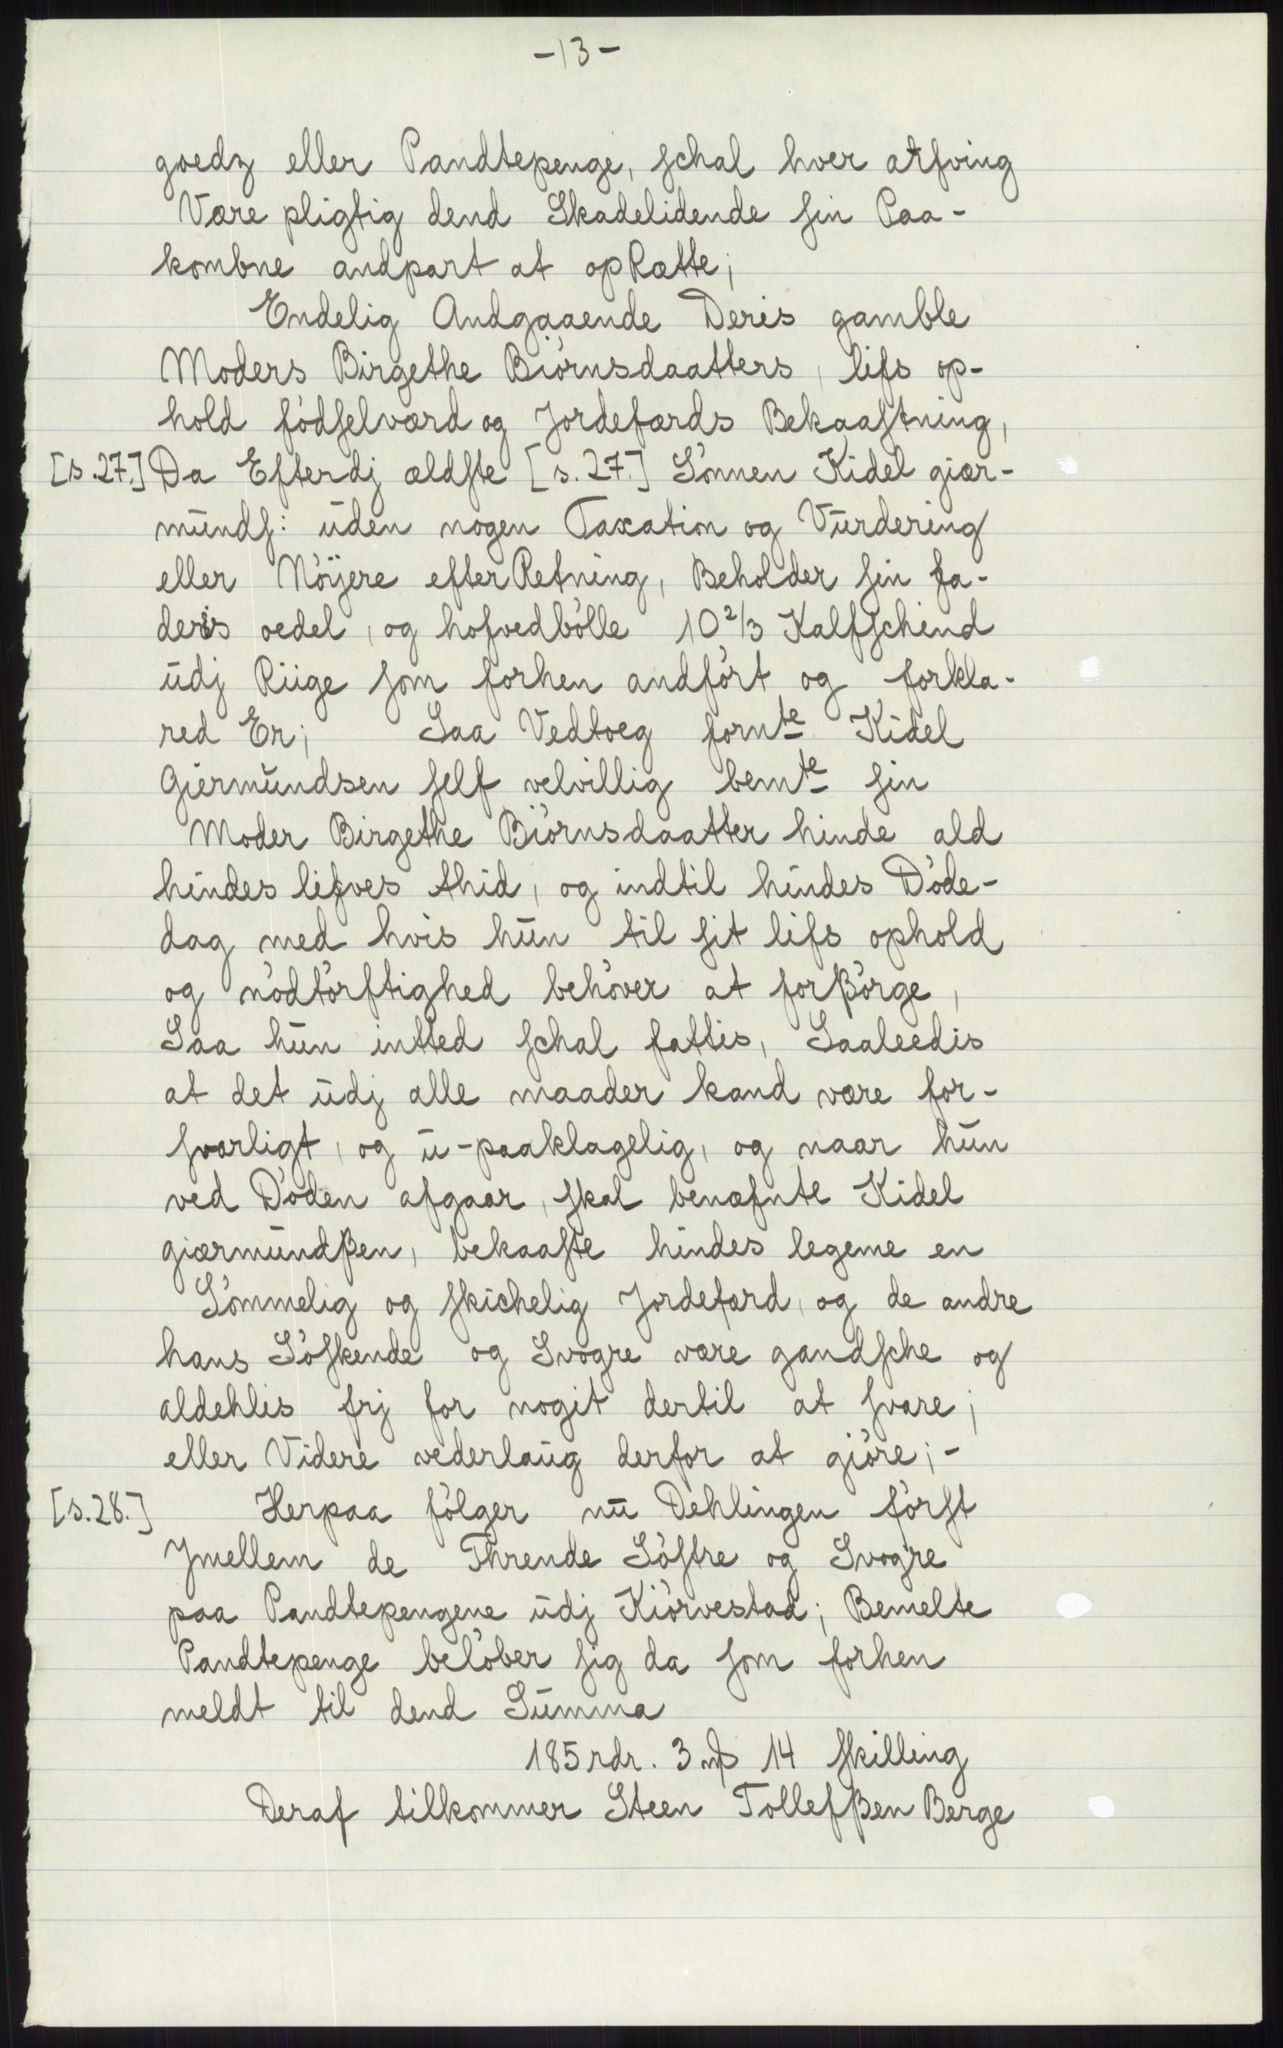 -13-
goedz eller Pandtepenge, schal hver arfving
Være pligtig dend Skadelidende sin Paa-
kombne andpart at opRætte;
Endelig Andgaaende Deris gamble
Moders Birgethe Biörnsdaatters, lifs op-
hold födselværd og Jordefærds Bekaastning,
[s.27.] Da Efterdj ældste [s. 27.] Sönnen Kidel giær-
munds: uden nogen Taxation og Vurdering
eller Nöÿere efterRetning, Beholder sin fa-
deris oedel, og hofvedbölle 10 2/3 Kalfschind
udj Riige som forhen andfört og forkla-
red Er; Saa Vedtoeg fornte Kidel
Giermundsen self velvillig bemte sin
Moder Birgethe Biörnsdaatter hinde ald
hindes lifves thid, og indtil hindes Döde-
dag med hvis hun til sit lifs ophold
og nödtörftighed behöver at forßörge,
Saa hun intted schal fattis, Saaleedis
at det udj alle maader kand være for-
svarligt, og u-paaklagelig, og naar hun
ved Döden afgaar, skal benæfnte Kidel
giærmundßen, bekaaste hindes legeme en
Sömmelig og skichelig Jordefærd, og de andre
hans Söskende og Svogre være gandsche og
aldehlis frj for nogit dertil at svare;
eller Videre vederlaug derfor at giöre;-
[s.28.] Herpaa fölger nu Dehlingen först
Jmellem de Thrende Söstre og Svogre
paa Pandtepengene udj Kiörvestad; Bemelte
Pandtepenge belöber sig da som forhen
meldt til dend Summa
185 rdr. 3 ɱ 14 skilling
Deraf tilkommer Steen Tollefßen Berge